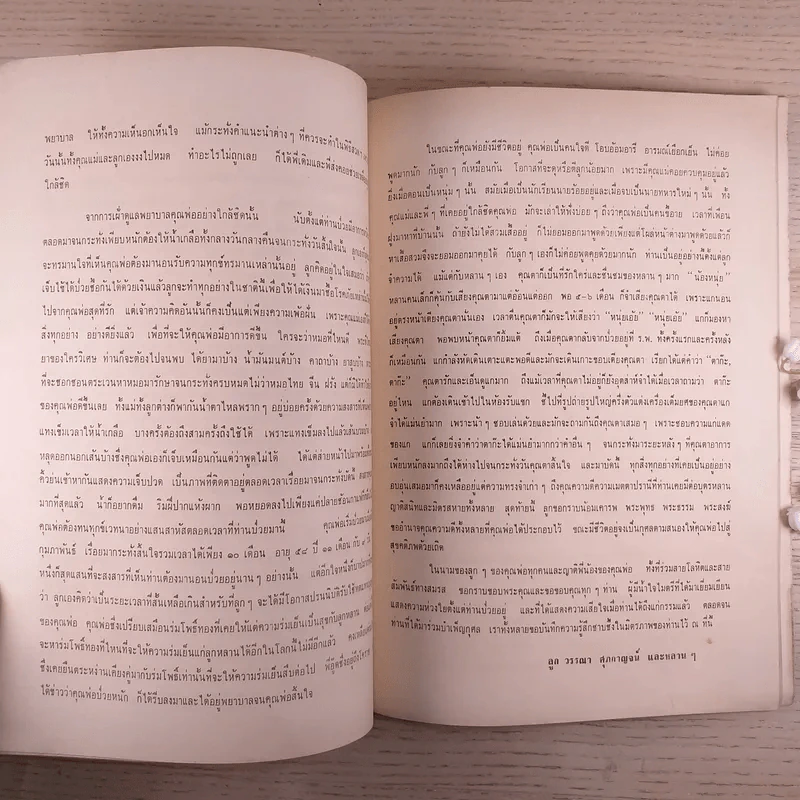 พยาบาล ให้ทั้งความเห็นอกเห็นใจ แม้กระทั่งคำแนะนำต่างๆ ที่ควรจะทำในพิธีสวดๆ
วันนั้นทั้งคุณแม่และลูกเองงงไปหมด ทำอะไรไม่ถูกเลย ก็ได้พี่เติมและพี่สงคอยช่วย
ใกล้ชิด
จากการเฝ้าดูแลพยาบาลคุณพ่ออย่างใกล้ชิดนั้น นับตั้งแต่ท่านป่วยมีอาการ
ตลอดมาจนกระทั่งเพียบหนักต้องให้น้ำเกลือทั้งกลางวันกลางคืนจนกระทั่งวันสิ้นใจนั้น
จะทรมานใจที่เห็นคุณพ่อต้องมานอนรับความทุกข์ทรมานเหล่านั้นอยู่ ลูกคิดอยู่ในใจเสมอว่า
เจ็บไข้ได้ป่วยซื้อกันได้ด้วยเงินแล้วลูกจะทำทุกอย่างในชาตินี้เพื่อให้ได้เงินมาซื้อโรคภัย
ไปจากคุณพ่อสุดที่รัก แต่เจ้าความคิดอันนั้นก็คงเป็นแต่เพียงความเพ้อฝัน เพราะคุณแม่
สิ่งทุกอย่าง อย่างดียิ่งแล้ว เพื่อที่จะให้คุณพ่อมีอาการดีขึ้น ใครจะว่าหมอที่ไหนดี
ยาของใครวิเศษ ท่านก็จะต้องไปจนพบ ได้ยามาบ้าง น้ำมันมนต์บ้าง คาถาบ้าง ยาสูบบ้าง
ที่จะซอกซอนตระเวนหาหมอมารักษาจนกระทั่งครบหมดไม่ว่าหมอไทย จีน ฝรั่ง แต่ก็ไม่
ของคุณพ่อดีขึ้นเลย ทั้งแม่ทั้งลูกต่างก็พากันน้ำตาไหลพรากๆ อยู่บ่อยครั้งด้วยความสงสารที่
แทงเข็มเวลาให้น้ำเกลือ บางครั้งต้องถึงสามครั้งถึงใช้ได้ เพราะแทงเข็มลงไปแล้วเส้น
หลุดออกนอกเส้นบ้างซึ่งคุณพ่อเองก็เจ็บเหมือนกันแต่ว่าพูดไม่ได้ ได้แต่ส่ายหน้าไปมา
คิ้วย่นเข้าหากันแสดงความเจ็บปวด เป็นภาพที่ติดตาอยู่ตลอดเวลาเรื่อยมาจนกระทั่งบัดนี้
มากที่สุดแล้ว น้ำก็อยากดื่ม ริมฝีปากแห้งผาก พอหยอดลงไปเพียงแค่ปลายช้อนกาแฟ
คุณพ่อต้องทนทุกข์เวทนาอย่างแสนสาหัสตลอดเวลาที่ท่านป่วยมานี้ คุณพ่อเริ่มป่วย
กุมภาพันธ์ เรื่อยมากระทั่งสิ้นใจรวมเวลาได้เพียง ๑๐ เดือน อายุ ๕๔ ปี ๑๑ เดือน กับ
หนึ่งก็สุดแสนที่จะสงสารที่เห็นท่านต้องมานอนป่วยอยู่นานๆ อย่างนั้น แต่อีกใจหนึ่งก็
ว่า ลูกเองคิดว่าเป็นระยะเวลาที่สั้นเหลือเกินสำหรับที่ลูกๆ จะได้มีโอกาสปรนนิบัติรับใช้
ของคุณพ่อ คุณพ่อซึ่งเปรียบเสมือนร่มโพธิ์ทองที่เคยให้แต่ความร่มเย็นเป็นสุขกับลูกหลาน
จะหาร่มโพธิ์ทองที่ไหนที่จะให้ความร่มเย็นแก่ลูกหลานได้อีกในโลกนี้ไม่มีอีกแล้ว คงเหลือ
ซึ่งเคยยืนตระหง่านเคียงคู่มากับร่มโพธิ์เท่านั้นที่จะให้ความร่มเย็นสืบต่อไป พี่อู๊ดซึ่งอยู่ถึง
ได้ข่าวว่าคุณพ่อป่วยหนัก ก็ได้รีบลงมาและได้อยู่พยาบาลจนคุณพ่อสิ้นใจ
ในขณะที่คุณพ่อยังมีชีวิตอยู่ คุณพ่อเป็นคนใจดี โอบอ้อมอารี อารมณ์เยือกเย็น ไม่ค่อย
พูดมากนัก กับลูกๆ ก็เหมือนกัน โอกาสที่จะดุหรือตีลูกน้อยมาก เพราะมีคุณแม่คอยควบคุมอยู่แล้ว
ยิ่งเมื่อตอนเป็นหนุ่มๆ นั้น สมัยเมื่อเป็นนักเรียนนายร้อยอยู่และเมื่อจบเป็นนายทหารใหม่ๆ นั้น ทั้ง
คุณแม่และพี่ๆ ที่เคยอยู่ใกล้ชิดคุณพ่อ มักจะเล่าให้ฟังบ่อยๆ ถึงว่าคุณพ่อเป็นคนขี้อาย เวลาที่เพื่อน
ฝูงมาหาที่บ้านนั้น ถ้ายังไม่ได้สวมเสื้ออยู่ ก็ไม่ยอมออกมาพูดด้วยเพียงแต่โผล่หน้าต่างมาพูดด้วยแล้วก็
หาเสื้อสวมจึงจะยอมออกมาคุยได้ กับลูกๆ เองก็ไม่ค่อยพูดคุยด้วยมากนัก ท่านเป็นอยู่อย่างนี้ตั้งแต่ลูก
จำความได้ แม้แต่กับหลานๆ เอง คุณตาก็เป็นที่รักใคร่และชื่นชมของหลานๆ มาก “น้องหนุ่ย”
หลานคนเล็กก็คุ้นกับเสียงคุณตามาแต่อ้อนแต่ออก พอ ๕-๖ เดือน ก็จำเสียงคุณตาได้ เพราะแกนอน
อยู่ตรงหน้าเตียงคุณตานั่นเอง เวลาตื่นคุณตาก็มักจะให้เสียงว่า “หนุ่ยเอ้ย” “หนุ่ยเอ้ย” แกก็มองหา
เสียงคุณตา พอพบหน้าคุณตาก็ยิ้มแต้ ถึงเมื่อคุณตากลับจากป่วยอยู่ที่ ร.พ. ทั้งครั้งแรกและครั้งหลัง
ก็เหมือนกัน แกกำลังหัดเดินเตาะแตะพอดีและมักจะเดินเกาะขอบเตียงคุณตา เรียกได้แต่คำว่า “ตาก๊ะ,
ตาก๊ะ” คุณตารักและเอ็นดูแกมาก ถึงแม้เวลาที่คุณตาไม่อยู่ก็ยังอุตส่าห์จำได้เมื่อเวลาถามว่า ตาก๊ะ
อยู่ไหน แกต้องเดินเข้าไปในห้องรับแขก ชี้ไปที่รูปถ่ายรูปใหญ่ครึ่งตัวแต่งเครื่องเต็มยศของคุณตาแก
จำได้แม่นยำมาก เพราะน้าๆ ชอบเล่นด้วยและมักจะถามกันถึงคุณตาเสมอๆ เพราะชอบความแก่แดด
ของแก แกก็เลยยิ่งจำคำว่าตาก๊ะได้แม่นยำมากกว่าคำอื่นๆ จนกระทั่งมาระยะหลังๆ ที่คุณตาอาการ
เพียบหนักลงมากถึงได้ห่างไปจนกระทั่งวันคุณตาสิ้นใจ และมาบัดนี้ ทุกสิ่งทุกอย่างที่เคยเป็นอยู่อย่าง
อบอุ่นเสมอมาก็คงเหลืออยู่แต่ความทรงจำเก่าๆ ถึงคุณความดีความเมตตาปรานีที่ท่านเคยมีต่อบุตรหลาน
ญาติสนิทและมิตรสหายทั้งหลาย สุดท้ายนี้ ลูกขอกราบน้อมเคารพ พระพุทธ พระธรรม พระสงฆ์
ขออำนาจคุณความดีทั้งหลายที่คุณพ่อได้ประกอบไว้ ขณะมีชีวิตอยู่จงเป็นกุศลตามสนองให้คุณพ่อไปสู่
สุขคติภพด้วยเถิด
ในนามของลูกๆ ของคุณพ่อทุกคนและญาติพี่น้องของคุณพ่อ ทั้งที่ร่วมสายโลหิตและสาย
สัมพันธ์ทางสมรส ขอกราบขอบพระคุณและขอขอบคุณทุกๆ ท่าน ผู้มีน้ำใจไมตรีที่ได้มาเยี่ยมเยียน
แสดงความห่วงใยตั้งแต่ท่านป่วยอยู่ และที่ได้แสดงความเสียใจเมื่อท่านได้ถึงแก่กรรมแล้ว ตลอดจน
ท่านที่ได้มาร่วมบำเพ็ญกุศล เราทั้งหลายขอบันทึกความรู้สึกซาบซึ้งในมิตรภาพของท่านไว้ ณ ที่นี้
ลูก วรรณา ศุภกาญจน์ และหลานๆ